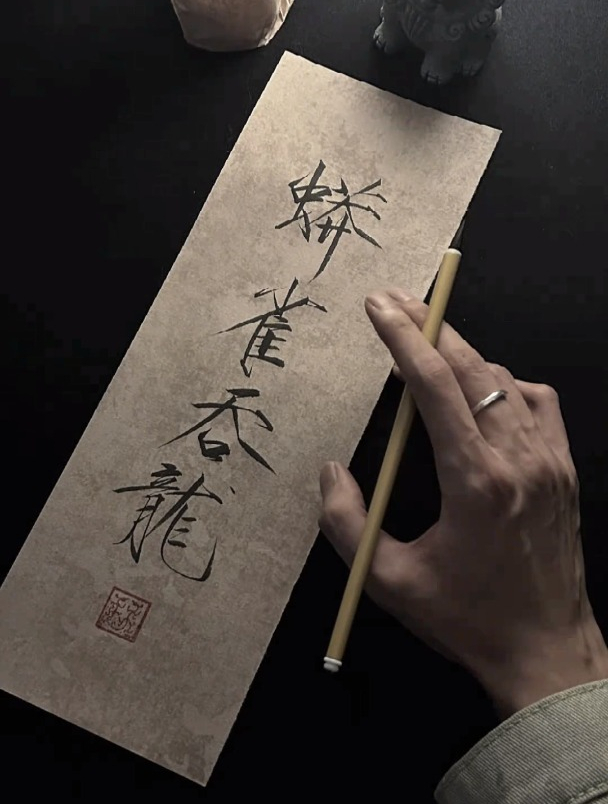 蟒
雀
吞
龍